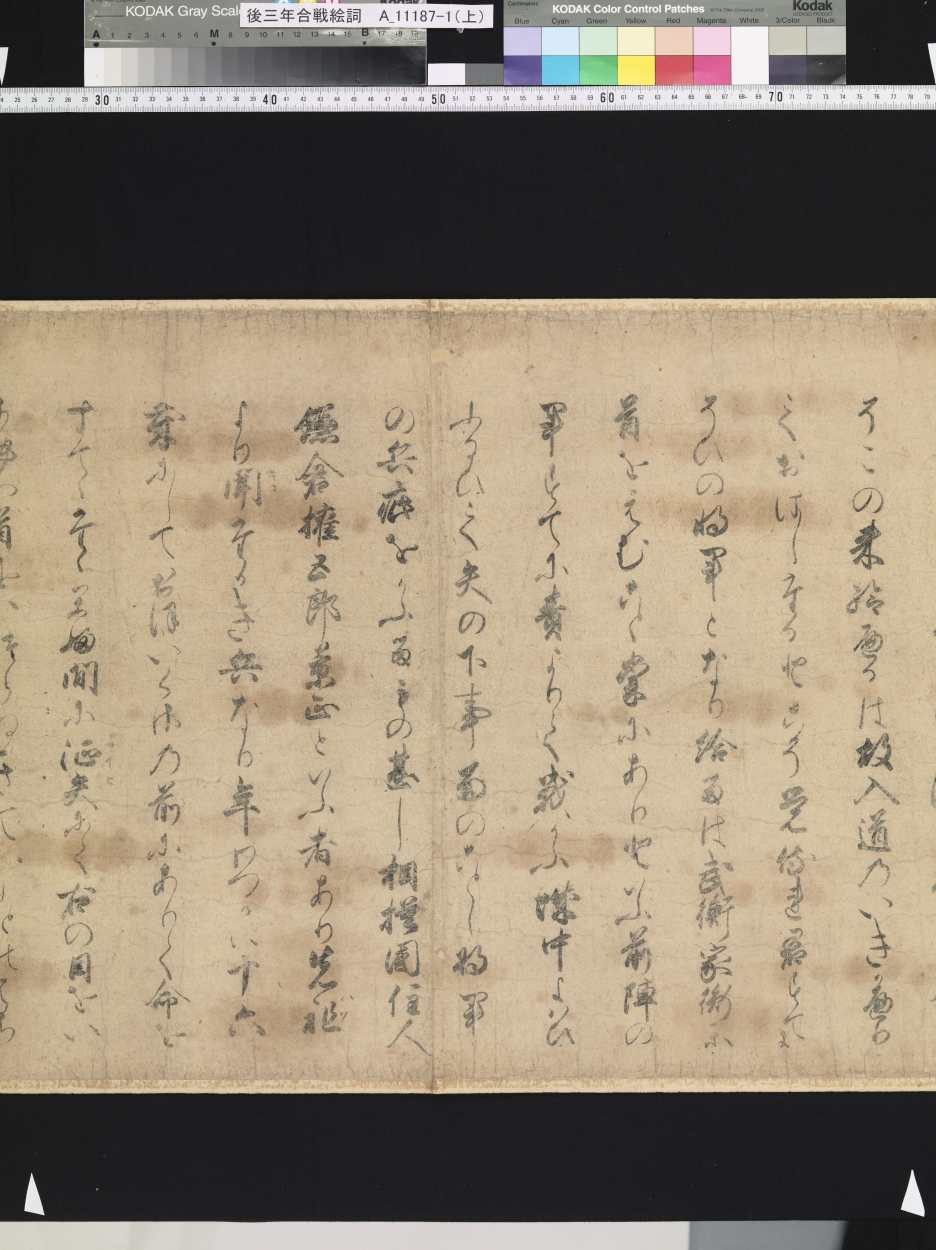 KODAK Gray Scale
Kodak
A 1 2 3 4 5 6 M 8 9 10 11 12 13 14 15 B 17 18 19
後三年合戦絵詞 A_11187-1(上)
KODAK Color Control Patches
Kodak
LICENSED PRODUCT
Blue Cyan Green Yellow Red Magenta White 3/Color Black
30 40 50 60 70
そこの来給へるは故入道のいきかへり
ておはしたるとこそ覚侍れ君すてに
そひの将軍となり給はゝ武衡家衡か
首をえむこと掌にありといふ前陣の
軍すてに責よりて戦かふ城中よはひ
ふるひて矢の下事雨のことし将軍
の兵疵をかふるもの甚し相模国住人
鎌倉権五郎景正といふ者あり先祖
より聞えたかき兵なり年わつかに十六
歳にしておほいくさの前にありて命を
すてゝたゝかふ間に征矢にて右の目をい